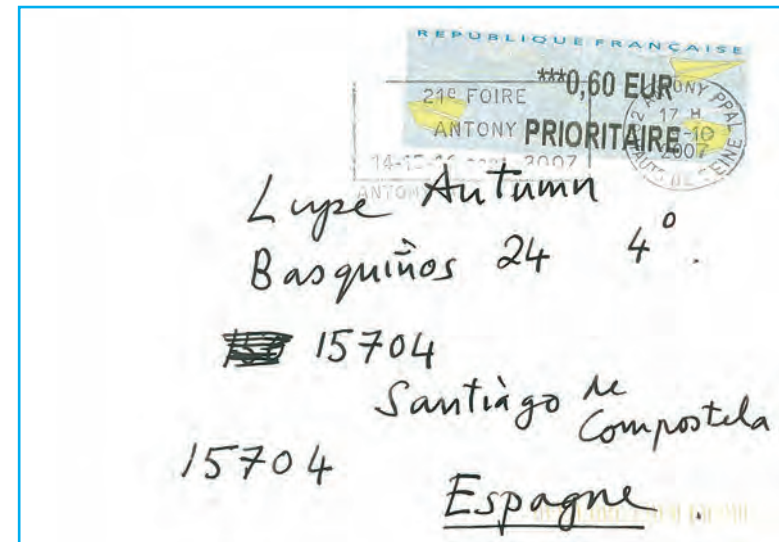 REPUBLIQUE FRANÇAISE
***0,60 EUR
PRIORITAIRE
21e FOIRE
ANTONY
14-15-16 2007
ANTONY
ANTONY PPAL
17 H
-10
2007
HAUTS DE SEINE
Lupe Autumn
Basquiños 24 4º.
15704
Santiàgo de
Compostela
15704
Espagne.